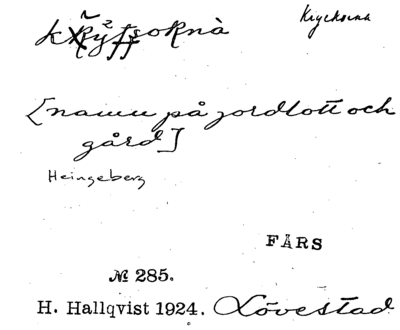 Kryeksena
[namn på jordlott och
gård]
Heingeberg
FÄRS
№ 285.
H. Hallqvist 1924. Lövestad